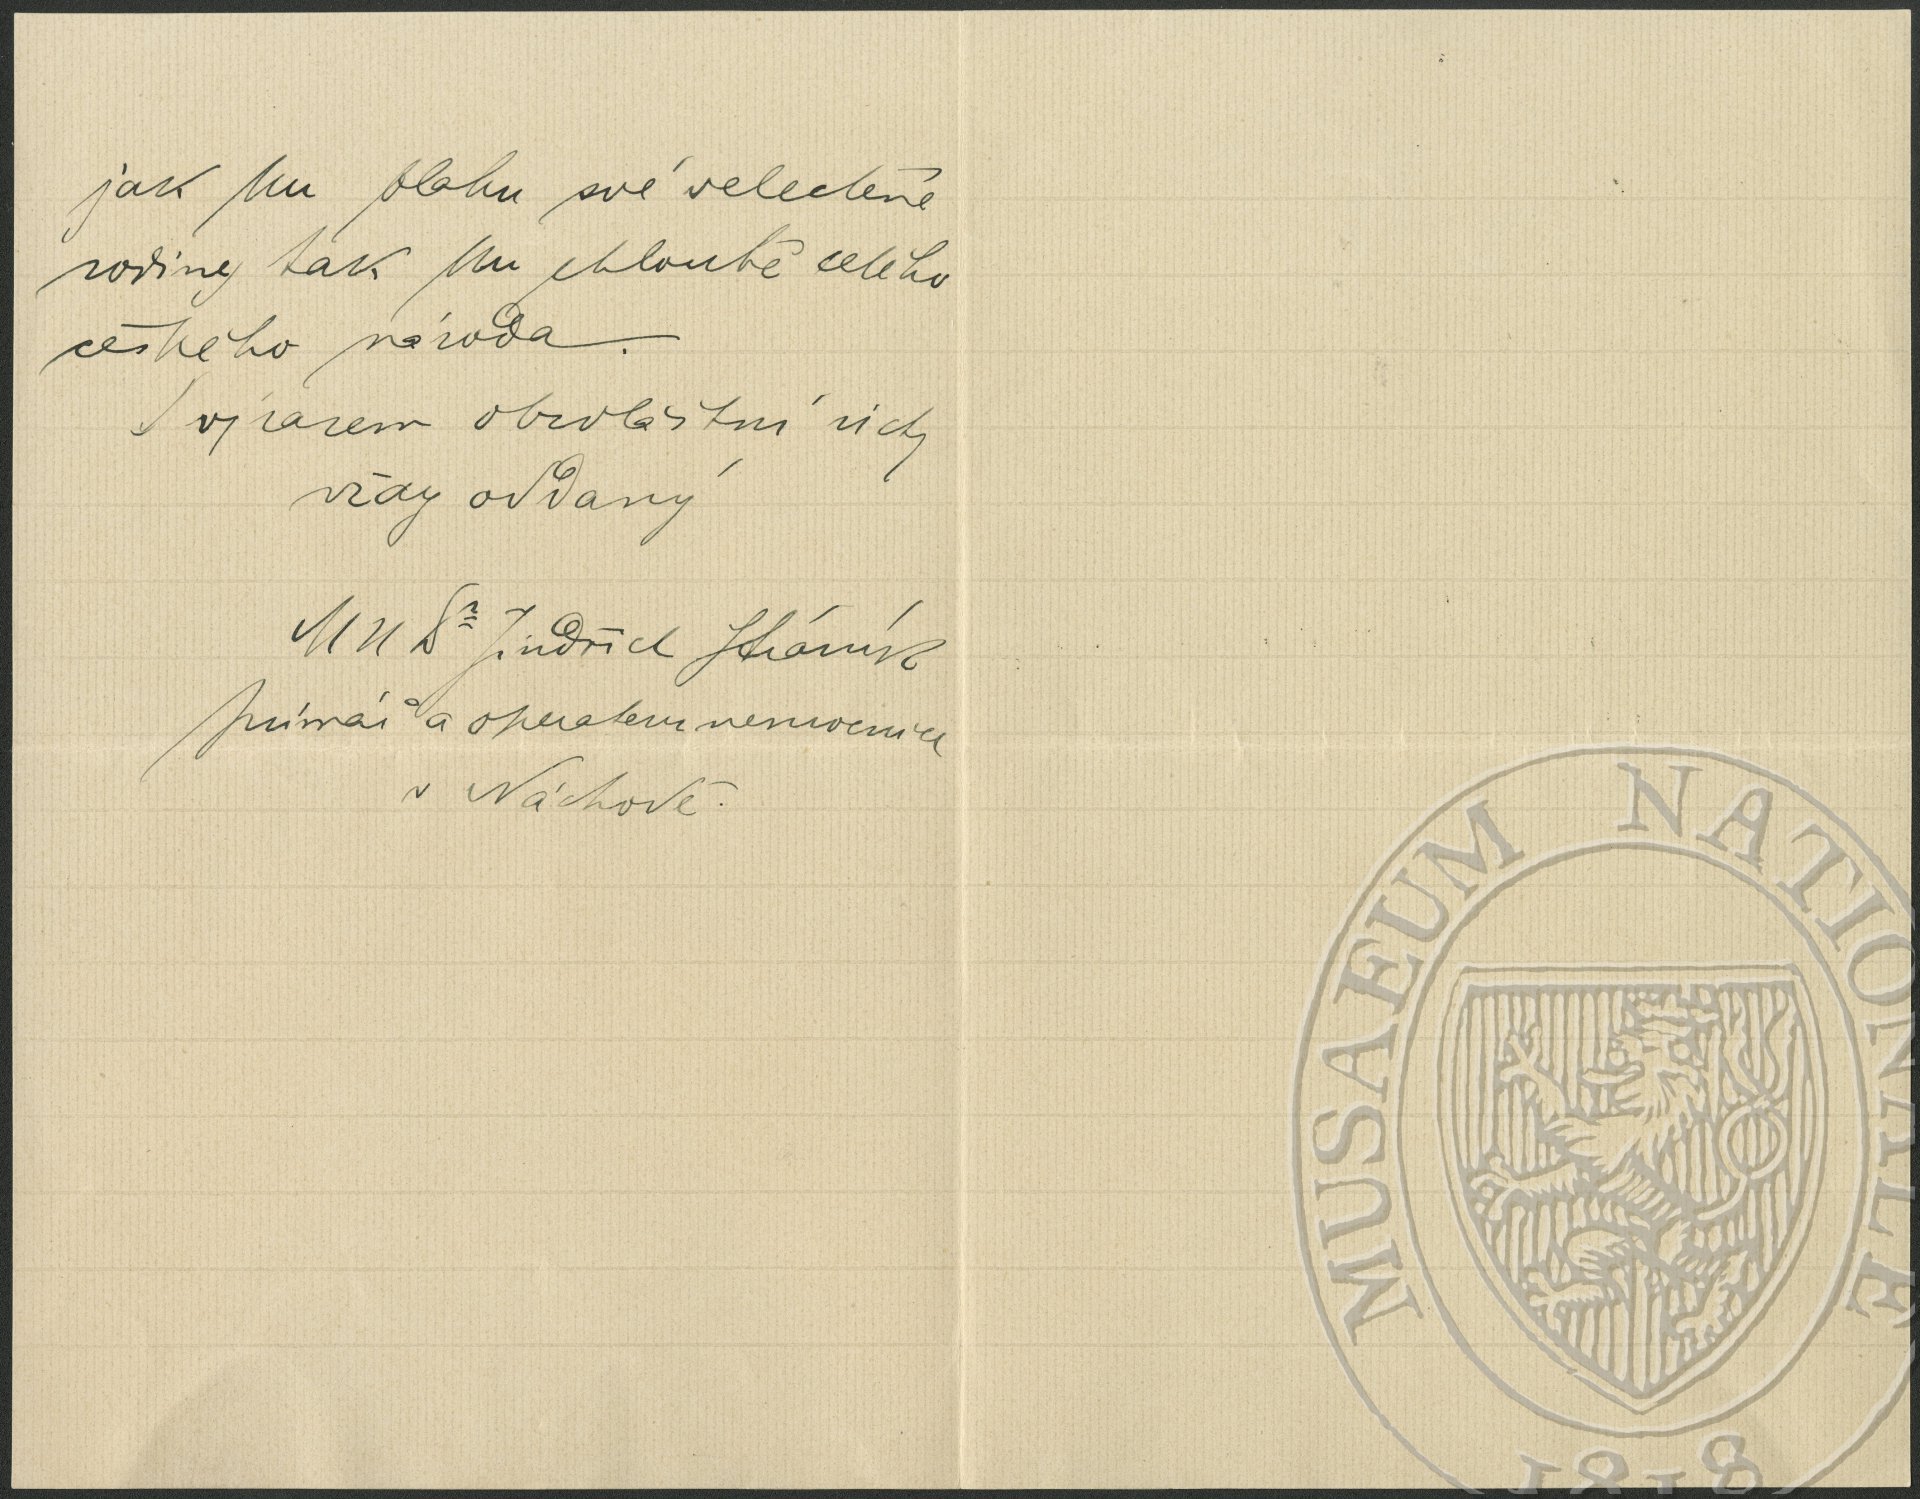 jak ku blahu své veleděné
rodiny tak ku chloubě celého
českého národa.
S výrazem obzvláštní úcty
vždy oddaný
MUDr Jindřich
primář a operateur nemocnice
v Náchodě.
MUSAEUM NATIONALE
1818